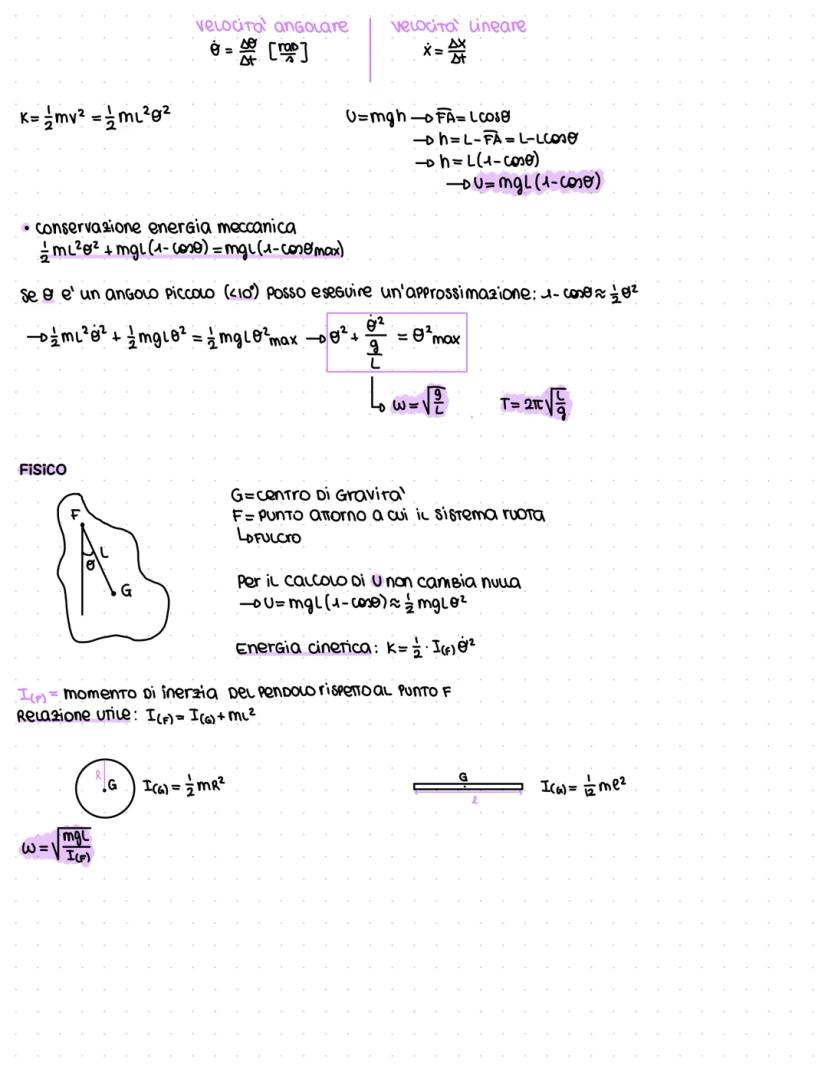 velocità angolare
velocità lineare
θ̇ = Δθ/Δt [rad/s]
ẋ = Δx/Δt
K = 1/2 mv² = 1/2 mL²θ̇²
U = mgh → F̅A̅ = Lcosθ
→ h = L - F̅A̅ = L - Lcosθ
→ h = L(1-cosθ)
→ U = mgL(1-cosθ)
• conservazione energia meccanica
1/2 mL²θ̇² + mgL(1-cosθ) = mgL(1-cosθmax)
Se θ e' un angolo piccolo (<10°) posso eseguire un'approssimazione: 1-cosθ ≈ 1/2 θ²
→ 1/2 mL²θ̇² + 1/2 mgLθ² = 1/2 mgLθ²max → θ² + θ̇²/(g/L) = θ²max
↳ ω = √(g/L)
T = 2π√(L/g)
FISICO
F
L
θ
G
G = centro di gravità
F = punto attorno a cui il sistema ruota
↳ fulcro
Per il calcolo di U non cambia nulla
→ U = mgL(1-cosθ) ≈ 1/2 mgLθ²
Energia cinetica: K = 1/2 · I(F) θ̇²
I(F) = momento di inerzia del pendolo rispetto al punto F
Relazione utile: I(F) = I(G) + mL²
R
G
I(G) = 1/2 mR²
G
l
I(G) = 1/12 ml²
ω = √(mgL/I(F))